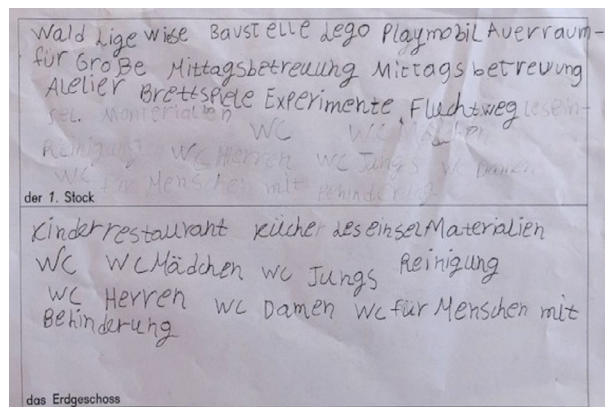 Wald Lige wise Baustelle Lego Playmobil Auerraum-
für Große Mittagsbetreuung Mittagsbetreuung
Atelier Brettspiele Experimente Fluchtweg lesein-
sel. Monterialien WC WC Mädchen
Reinigung WC Herren WC Jungs WC Damen
WC für Menschen mit Behinderung
der 1. Stock
Kinderrestaurant Kücher Leseinsel Materialien
WC WC Mädchen WC Jungs Reinigung
WC Herren WC Damen WC für Menschen mit
Behinderung
das Erdgeschoss